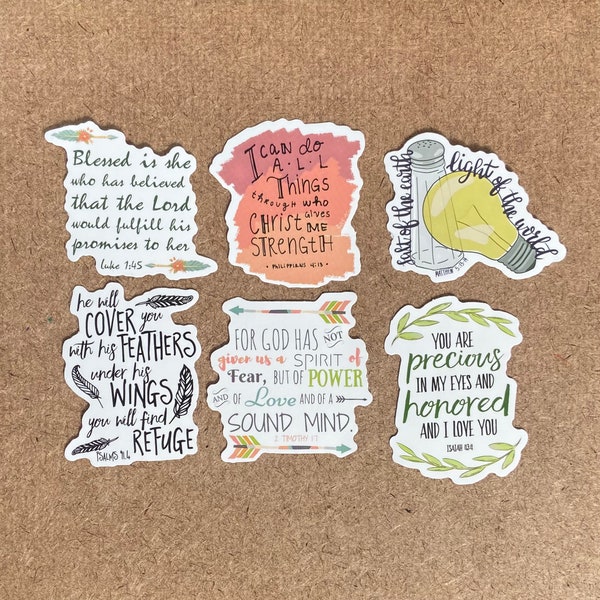 Blessed is she
who has believed
that the Lord
would fulfill his
promises to her
Luke 1:45
I CAN do
A.L.L
THINGS
through who
CHRIST GIVES
ME
STRENGTH
• PHILIPPIANS 4:13 •
salt of the earth
light of the world
MATTHEW 5:13-14
he will
COVER you
with his FEATHERS
under his
WINGS
you will find
REFUGE
PSALMS 91:4
FOR GOD HAS NOT
given us a SPIRIT of
FEAR, BUT OF POWER
AND OF Love AND OF A
SOUND MIND.
2 TIMOTHY 1:7
YOU ARE
precious
IN MY EYES AND
honored
AND I LOVE YOU
ISAIAH 43:4